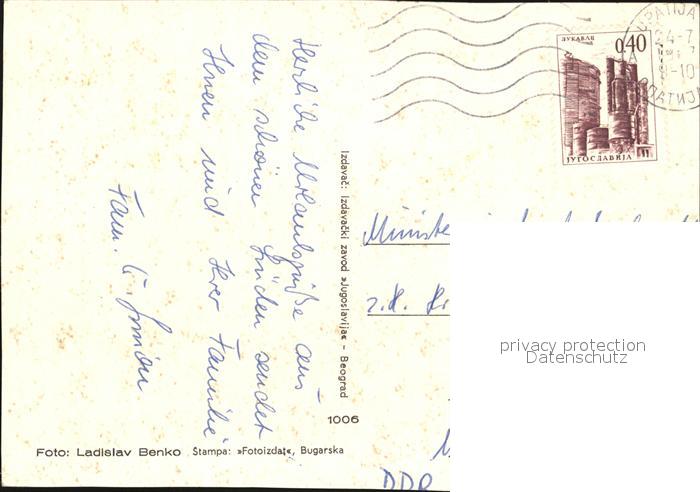 Herzliche Urlaubsgrüße aus
dem schönen Süden sendet
Ihnen und Ihrer Familie
Fam.
Izdavač: Izdavački zavod »Jugoslavija« – Beograd
1006
Foto: Ladislav Benko Štampa: »Fotoizdat«, Bugarska
ЛУКАВАЦ
0,40
ЈУГОСЛАВИЈА
OPATIJA
24-7
9-10
ОПАТИЈА
Ministe
z.H.
DDR
privacy protection
Datenschutz